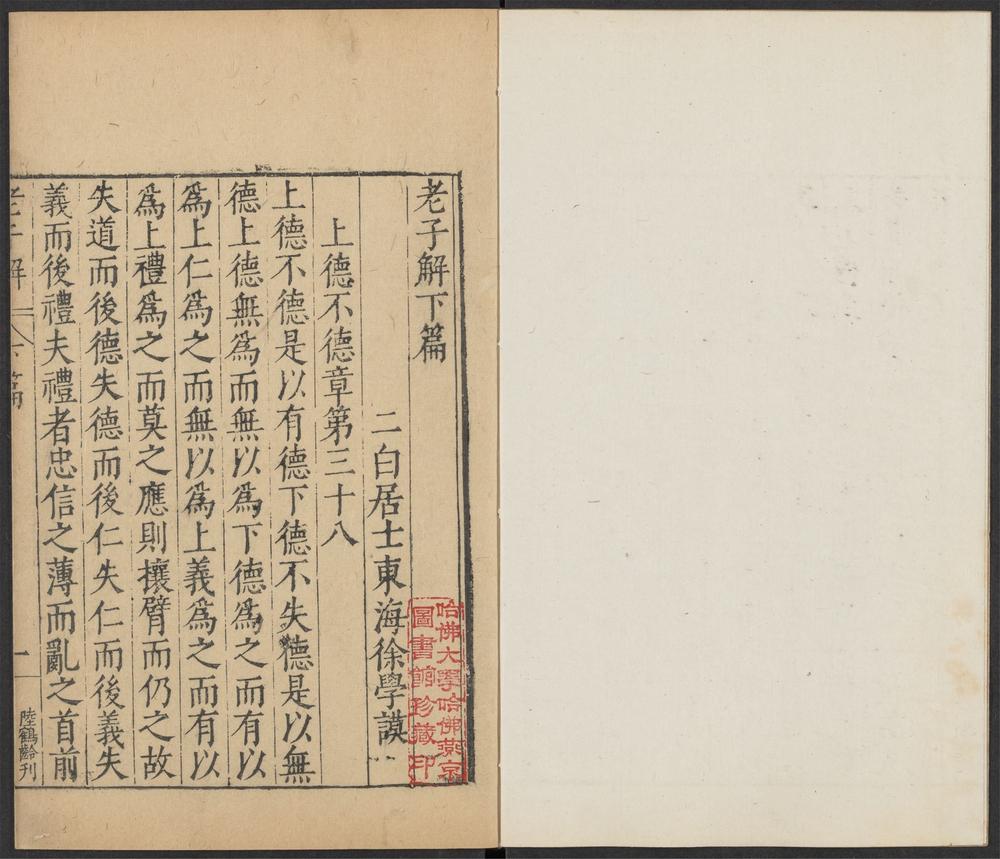 老子解下篇
二白居士東海徐學謨
上德不德章第三十八
上德不德是以有德下德不失德是以無
德上德無爲而無以爲下德爲之而有以
爲上仁爲之而無以爲上義爲之而有以
爲上禮爲之而莫之應則攘臂而仍之故
失道而後德失德而後仁失仁而後義失
義而後禮夫禮者忠信之薄而亂之首前
老子解 下篇 一
陸鶴齡刊
哈佛大學哈佛燕京
圖書館珍藏印